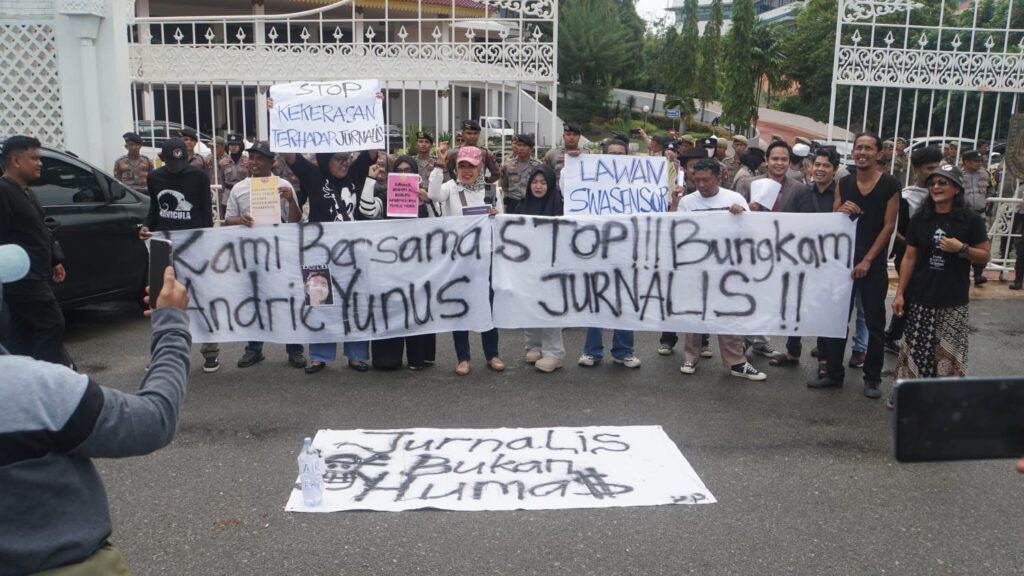 STOP
KEKERASAN
TERHADAP JURNALIS
NAVICULA
LAWAN
SWASENSOR
Kami Bersama
Andrie Yunus
STOP!!! Bungkam
JURNALIS !!
JurnaLIS
Bukan
Huma$
AIR